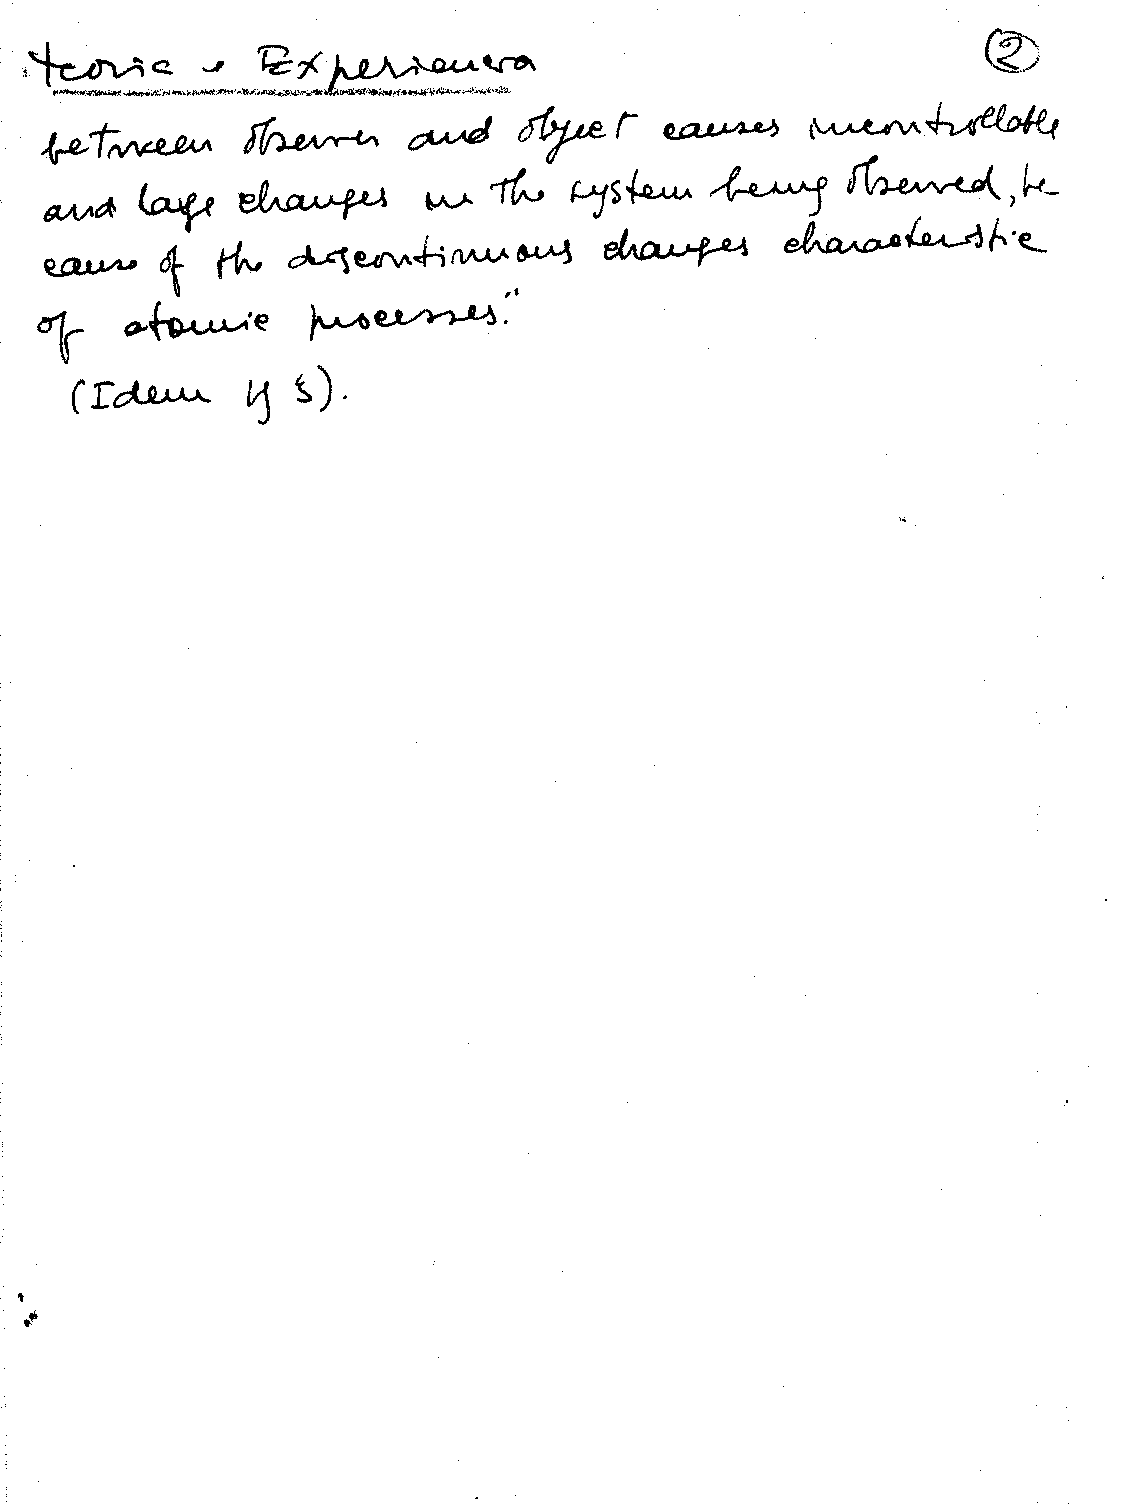 Teoria e Experiencia
②
between observer and object causes incontrollable
and large changes in the system being observed, be-
cause of the discontinuous changes characteristic
of atomic processes."
(Idem